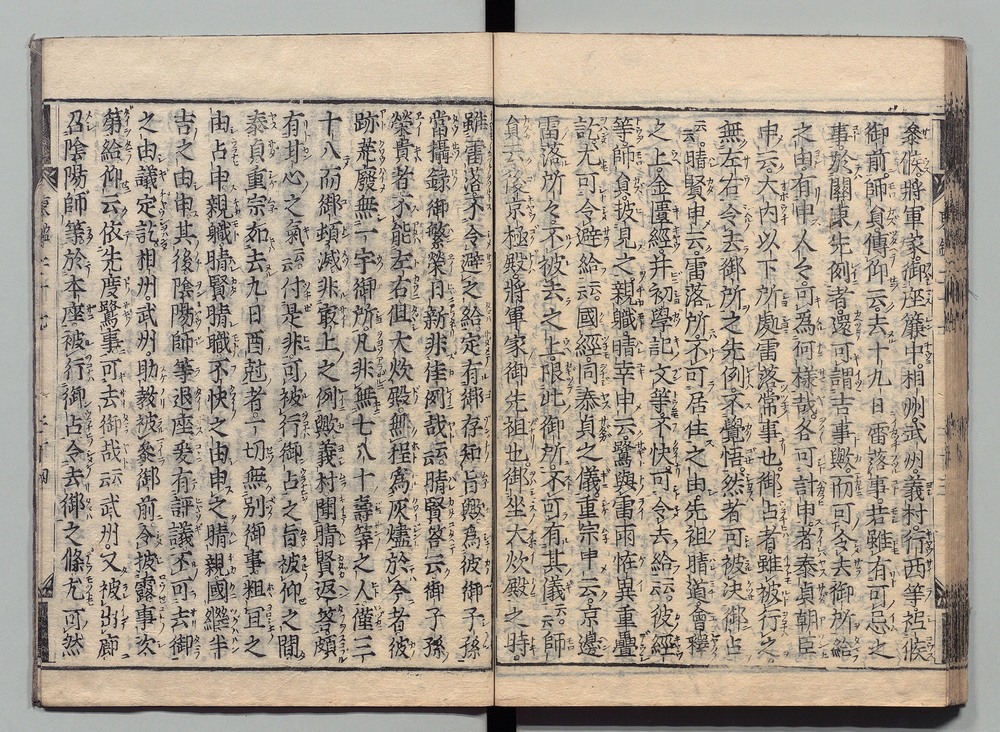 參候將軍家御座簾中。相州武州。義村。行西等祗候
御前。師負傳仰云。去十九日雷落事若雖有可忌之
事於關東先例者。還可謂吉事歟。而可令去御所給
之由。有申人々。可爲何樣哉。各可計申者泰貞朝臣
申云。大內以下所處雷落常事也。御占者雖被行之。
無左右令去御所之先例不覺悟然者可被決御占
云。晴賢申云。雷落所。不可居住之由。先祖晴道會釋
之上。金匱經并初學記文等。不快。可令去給云云。彼經
等師負。披見之。親職晴幸申云。驚與雷雨恠異重疊
訖。尤可令避給云云。國經同泰貞之儀。重宗申云。京邊
雷落所々。不被去之上。限此御所。不可有其儀云云。師
負云。後京極殿將軍家御先祖也。御坐大炊殿之時。
雖雷落不令避之給定有御存知旨歟。爲彼御子孫
當攝録御繁榮日新。非佳例哉云云。晴賢答云。御子孫
榮貴者不能左右但大炊殿無程爲灰燼於今者彼
跡荒廢無一宇御所凡非無七八十壽等之人僅三
十八而御頓滅非最上之例歟。義村聞晴賢返答頗
有甘心之氣云云。付是非可被行御占之旨被仰之間
泰貞重宗如去九日酉尅者一切無別御事粗宜之
由占申親職晴賢晴職不快之由申之晴親國繼半
吉之由申其後陰陽師等退座爰有評議不可去御
之由議定訖相州。武州。助敎被參御前令披露事次
第給仰云依先度驚事可去御哉云云武州。又被出廊
召陰陽師等於本座被行御占令去御之條尤可然